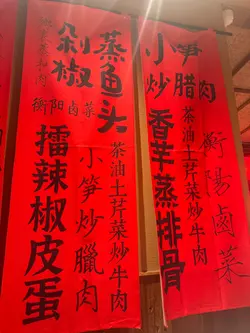 剁椒
蒸鱼头
衡阳卤菜
擂辣椒皮蛋
小笋炒臘肉
茶油土芹菜炒牛肉
小笋
炒腊肉
香芋蒸排骨
茶油土芹菜炒牛肉
衡陽鹵菜